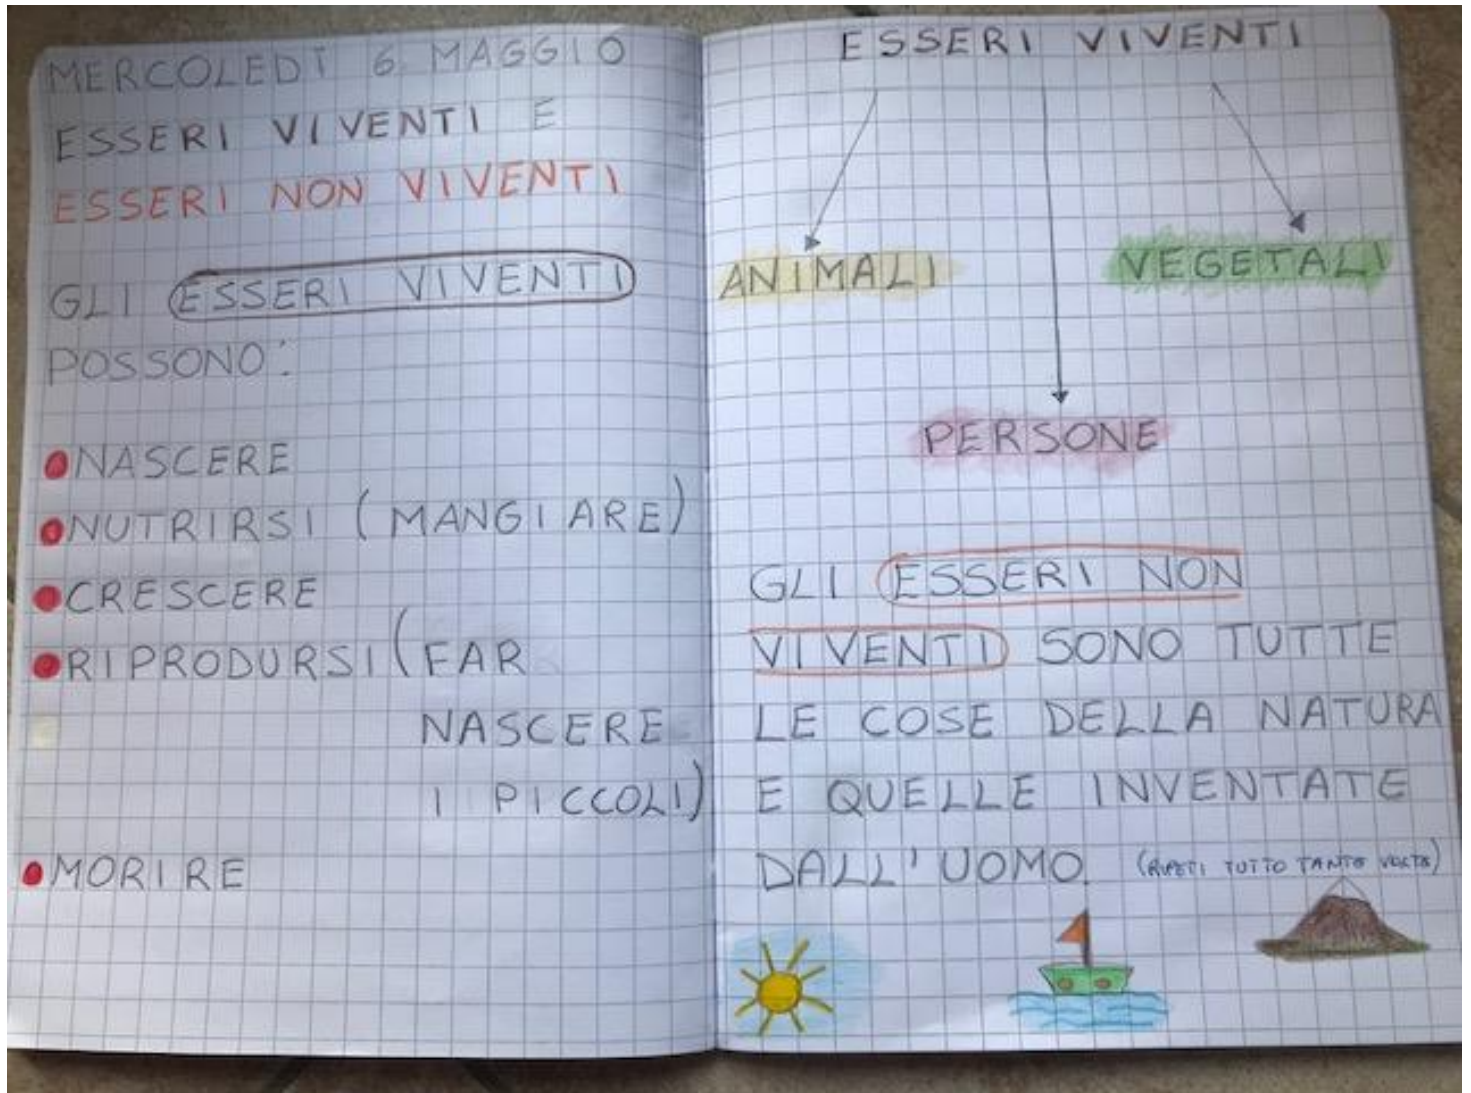 MERCOLEDÌ 6 MAGGIO
ESSERI VIVENTI E
ESSERI NON VIVENTI
GLI ESSERI VIVENTI
POSSONO:
NASCERE
NUTRIRSI (MANGIARE)
CRESCERE
RIPRODURSI (FAR
NASCERE
I PICCOLI)
MORIRE
ESSERI VIVENTI
ANIMALI VEGETALI
PERSONE
GLI ESSERI NON
VIVENTI SONO TUTTE
LE COSE DELLA NATURA
E QUELLE INVENTATE
DALL'UOMO. (RIPETI TUTTO TANTE VOLTE)